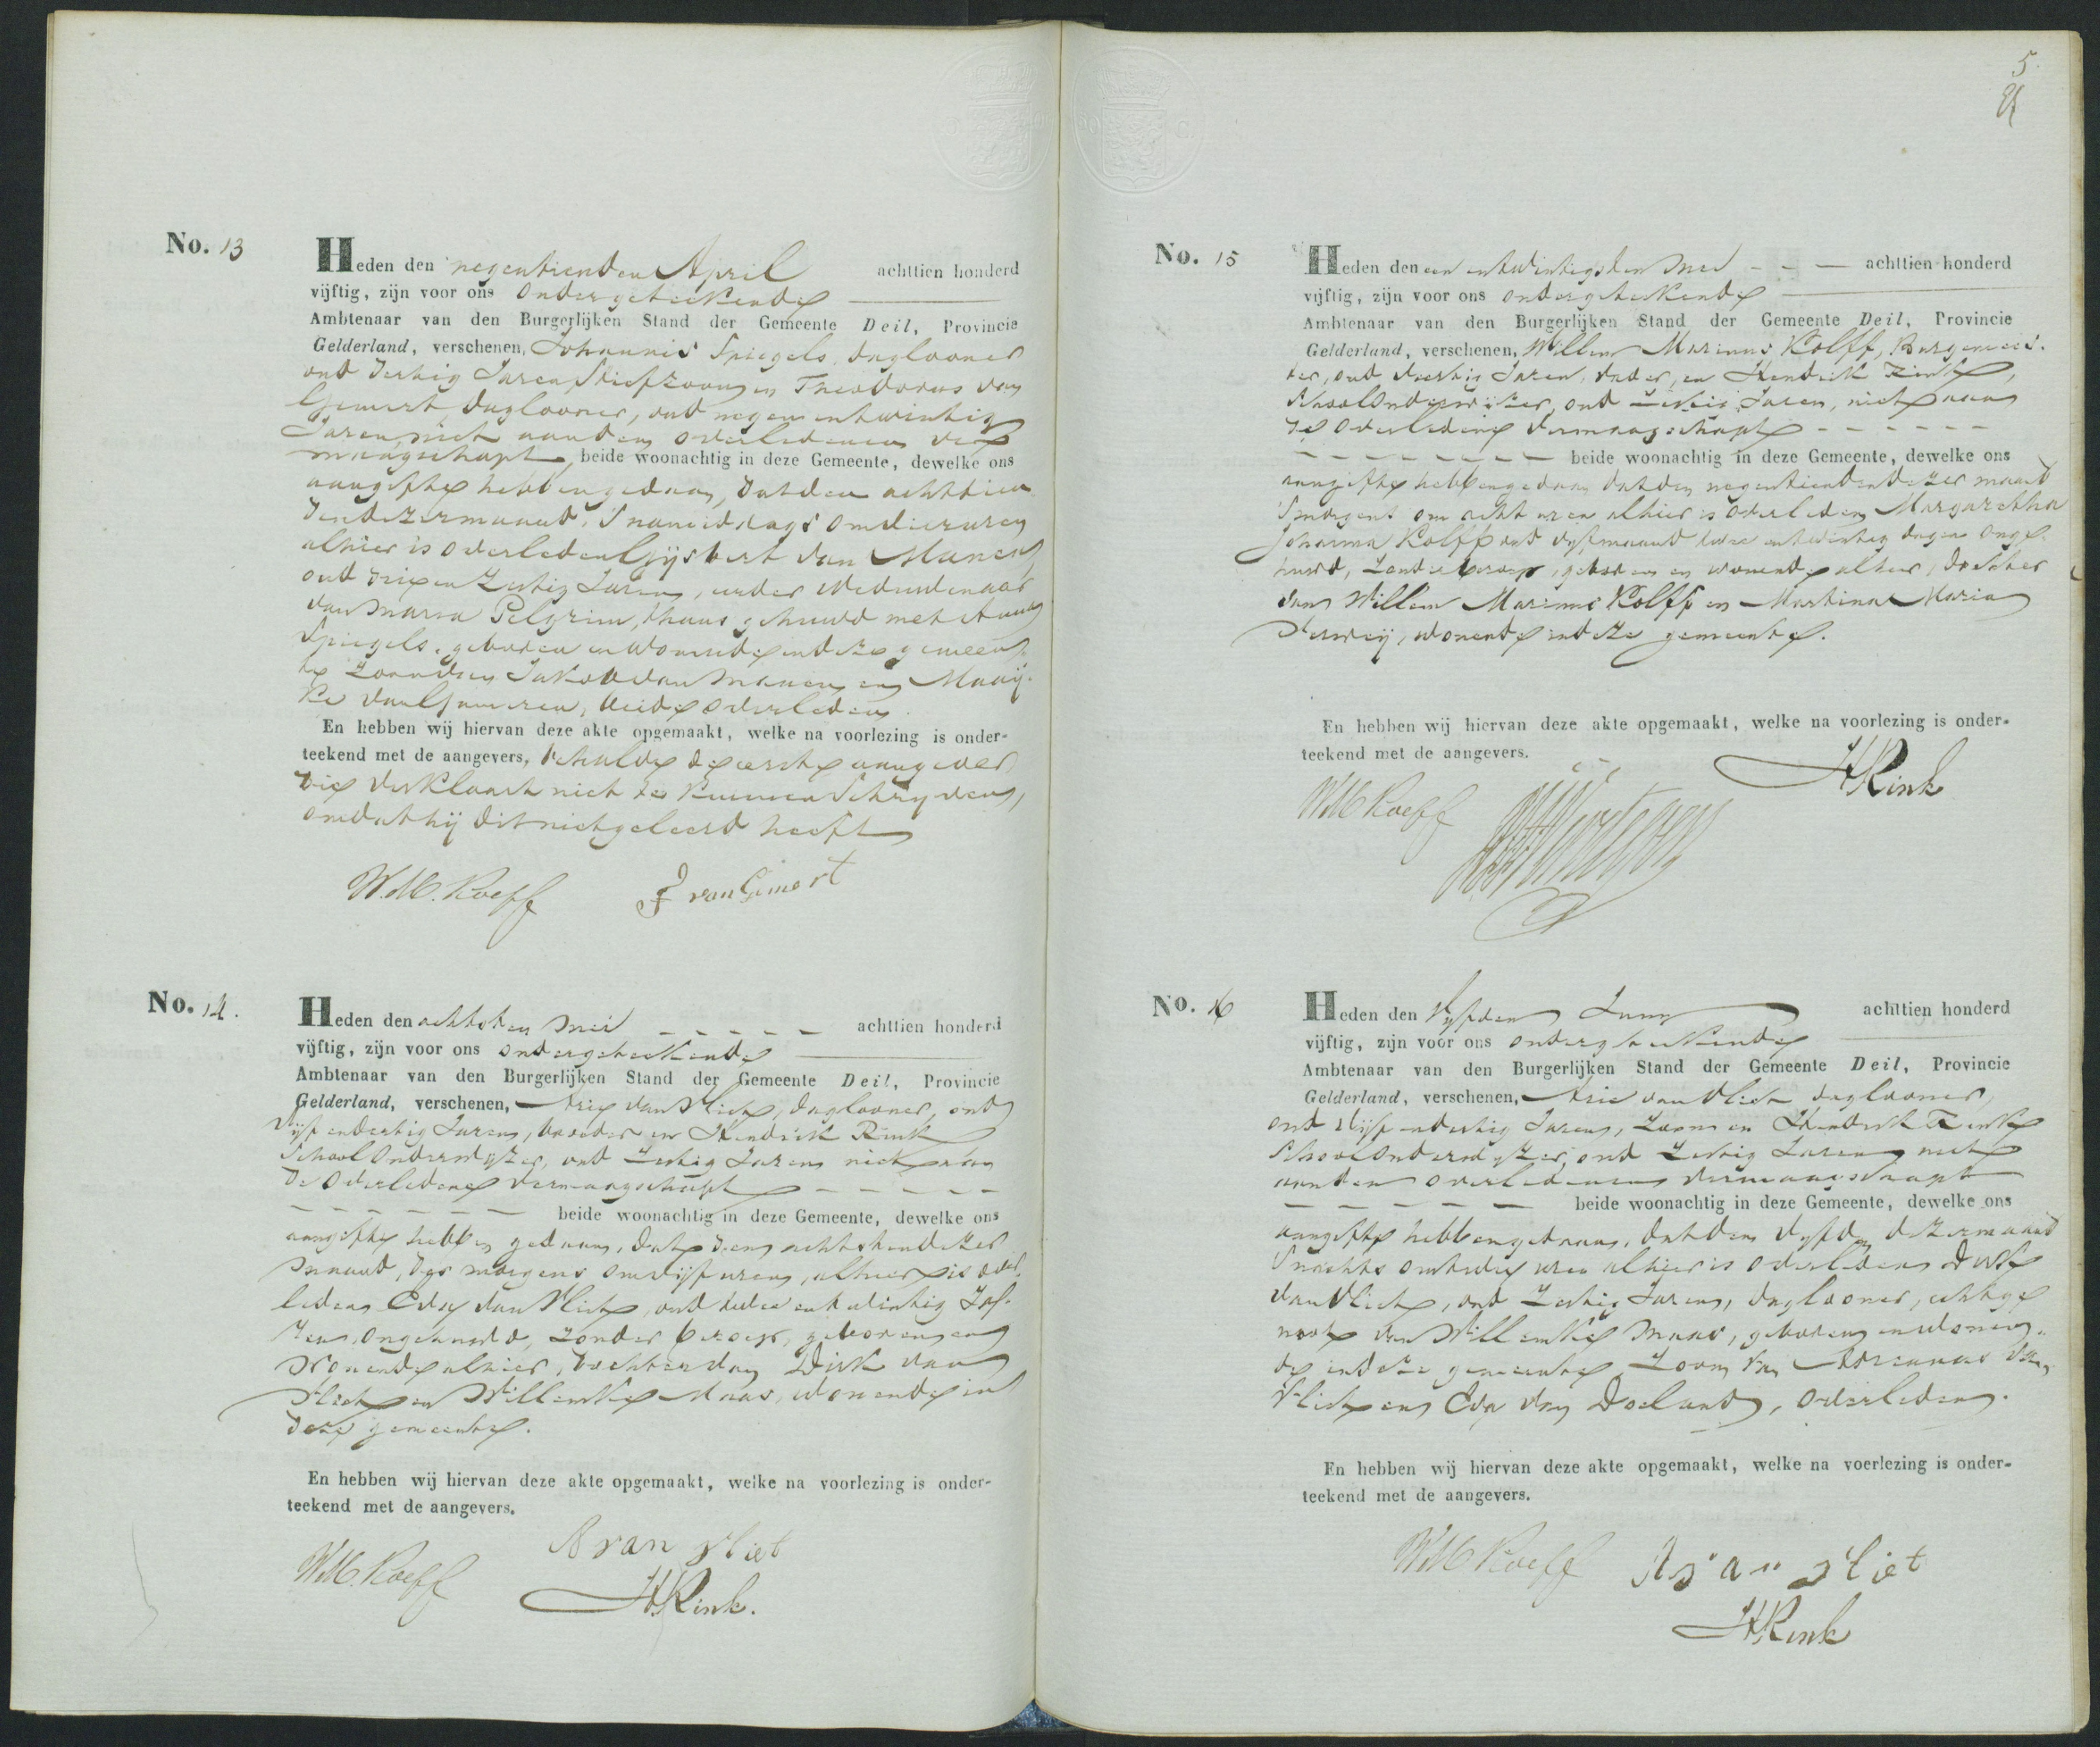 No. 13
Heden den negentienden April achttien honderd
vijftig, zijn voor ons ondergeteekende
Ambtenaar van den Burgerlijken Stand der Gemeente Deil, Provincie
Gelderland, verschenen, Johannis Spiegels daglooner
oud dertig Jaren Stiefzoon en Theodorus van
Gemert daglooner, oud negen entwintig
Jaren, niet aan den overledenen ver
maagschapt beide woonachtig in deze Gemeente, dewelke ons
aangifte hebben gedaan, dat den achttien
den dezer maand, 's namiddags om vier uren
alhier is overleden Gijsbert van Manen,
oud drie en zestig Jaren, eerder Weduwenaar
van Maria Pelgrim, thans gehuwd met
Spiegels, geboren en wonende in deze gemeen
te zoon van Jakob van Manen en Maaij-
ke van Gameren, beide overleden.
En hebben wij hiervan deze akte opgemaakt, welke na voorlezing is onder-
teekend met de aangevers, behalve de eerste aangever
die verklaart niet te kunnen schrijven,
omdat hij dit niet geleerd heeft
W.M. Kolff T van Gemert
No. 14.
Heden den achtsten Mei - - - - - achttien honderd
vijftig, zijn voor ons ondergeteekende
Ambtenaar van den Burgerlijken Stand der Gemeente Deil, Provincie
Gelderland, verschenen, Arie van Vliet, daglooner, oud
vijf en dertig Jaren, broeder en Hendrik Rink
School Onderwijzer, oud zestig Jaren niet aan
de overledene vermaagschapt - - - - -
- - - - - - beide woonachtig in deze Gemeente, dewelke ons
aangifte hebben gedaan, dat den achtsten dezer
maand, des morgens om vijf uren, alhier is over
leden Eva van Vliet, oud twee en twintig Ja-
ren, ongehuwd, zonder beroep, geboren en
wonende alhier, dochter van Dirk van
Vliet en Willemke Maas, wonende in
deze gemeente.
En hebben wij hiervan deze akte opgemaakt, welke na voorlezing is onder-
teekend met de aangevers.
W.M. Kolff A van Vliet
H Rink.
5.
No. 15
Heden den een entwintigsten Mei - - - achttien honderd
vijftig, zijn voor ons ondergeteekende
Ambtenaar van den Burgerlijken Stand der Gemeente Deil, Provincie
Gelderland, verschenen, Willem Marinus Kolff, Burgemees-
ter, oud Jaren, vader, en Hendrik Rink,
School Onderwijzer, oud zestig Jaren, niet aan
de overledene vermaagschapt - - - - - -
- - - - - - - beide woonachtig in deze Gemeente, dewelke ons
aangifte hebben gedaan dat den negentienden dezer maand
's morgens om acht uren alhier is overleden Margaretha
Johanna Kolff oud vijf maand twee entwintig dagen onge-
huwd, zonder beroep, geboren en wonende alhier, dochter
van Willem Marinus Kolff en Martina Maria
Verweij, wonende in deze gemeente.
En hebben wij hiervan deze akte opgemaakt, welke na voorlezing is onder-
teekend met de aangevers.
H Rink
WM Kolff
No. 16
Heden den Vijfden Juny achttien honderd
vijftig, zijn voor ons ondergeteekende
Ambtenaar van den Burgerlijken Stand der Gemeente Deil, Provincie
Gelderland, verschenen, Arie van Vliet daglooner,
oud vijf en dertig Jaren, zoon en Hendrik Rink
School Onderwijzer, oud zestig Jaren niet
aan den overledenen vermaagschapt
- - - - - beide woonachtig in deze Gemeente, dewelke ons
aangifte hebben gedaan, dat den vijfden dezer maand
's nachts om twee uren alhier is overleden Dirk
van Vliet, oud zestig Jaren, daglooner, echtge-
noot van Willemke Maas, geboren en wonen-
de in deze gemeente zoon van Adrianus van
Vliet en Eva van Doeland, overleden.
En hebben wij hiervan deze akte opgemaakt, welke na voerlezing is onder-
teekend met de aangevers.
WM Kolff A van Vliet
H Rink